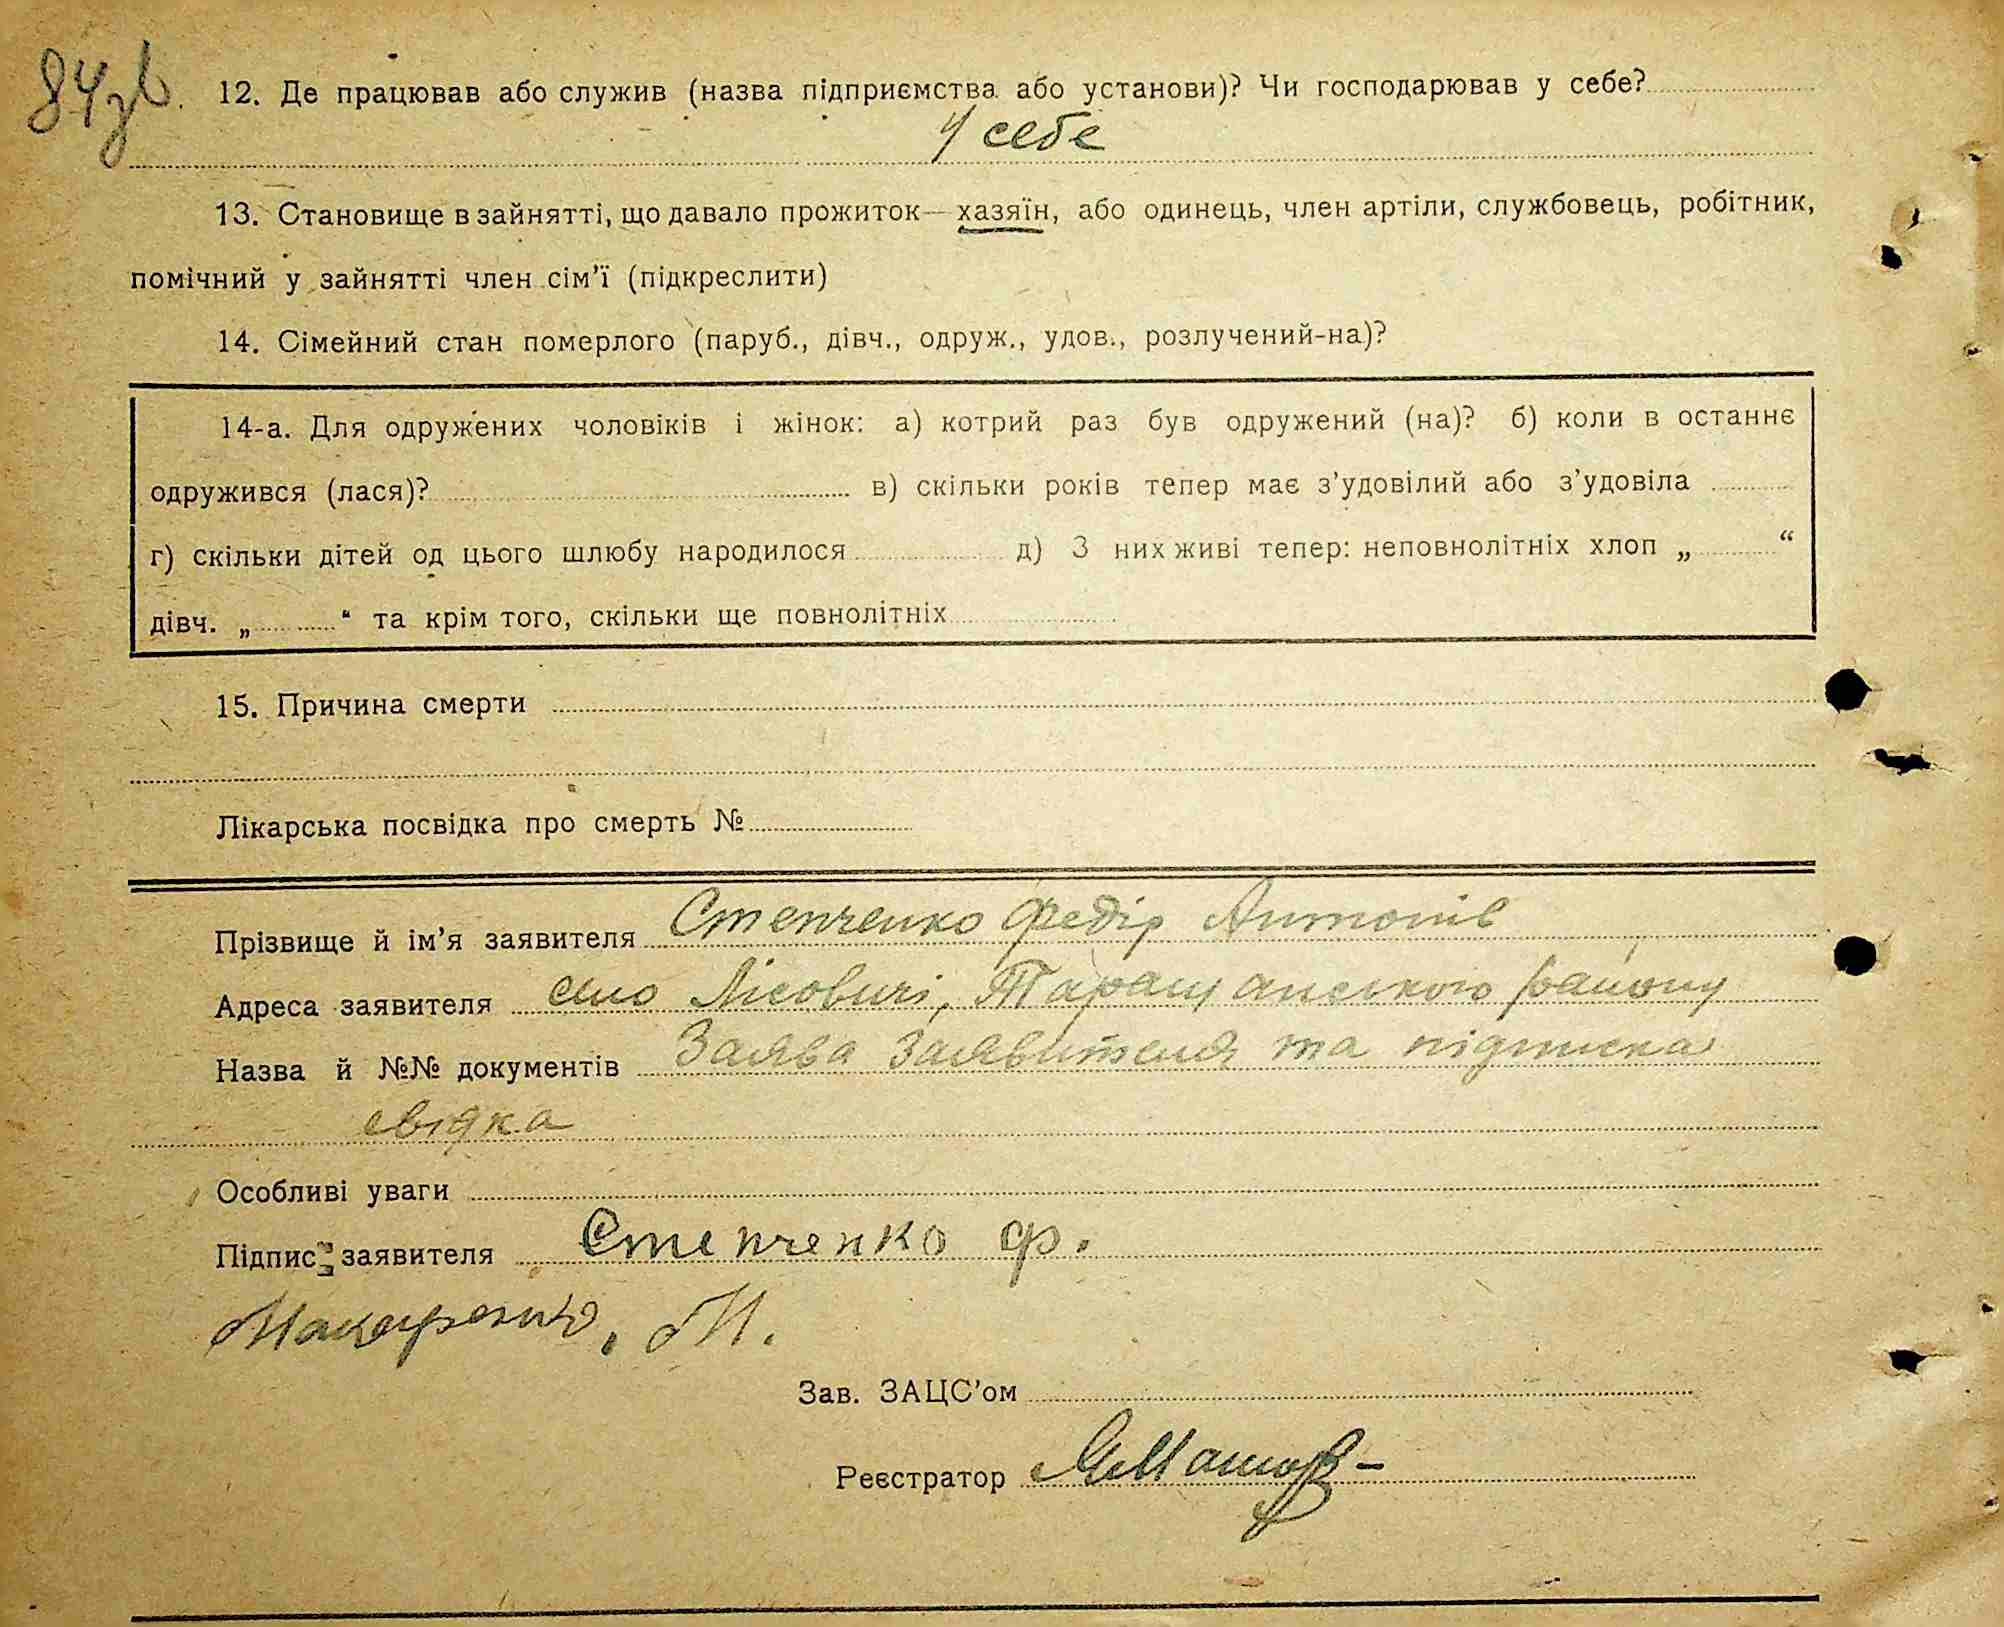 84зв.
12. Де працював або служив (назва підприємства або установи)? Чи господарював у себе?
У себе
13. Становище в зайнятті, що давало прожиток—хазяїн, або одинець, член артіли, службовець, робітник,
помічний у зайнятті член сім’ї (підкреслити)
14. Сімейний стан померлого (паруб., дівч., одруж., удов., розлучений-на)?
14-а. Для одружених чоловіків і жінок: а) котрий раз був одружений (на)? б) коли в останнє
одружився (лася)? в) скільки років тепер має з’удовілий або з’удовіла
г) скільки дітей од цього шлюбу народилося д) З них живі тепер: неповнолітніх хлоп „ “
дівч. „ “ та крім того, скільки ще повнолітніх
15. Причина смерти
Лікарська посвідка про смерть №
Прізвище й ім’я заявителя Степченко Федір Антонів
Адреса заявителя село Лісовичі, Таращанського району
Назва й №№ документів Заява заявителя та підписка
свідка
Особливі уваги
Підпис заявителя Степченко Ф.
Макаренко, М.
Зав. ЗАЦС’ом
Реєстратор